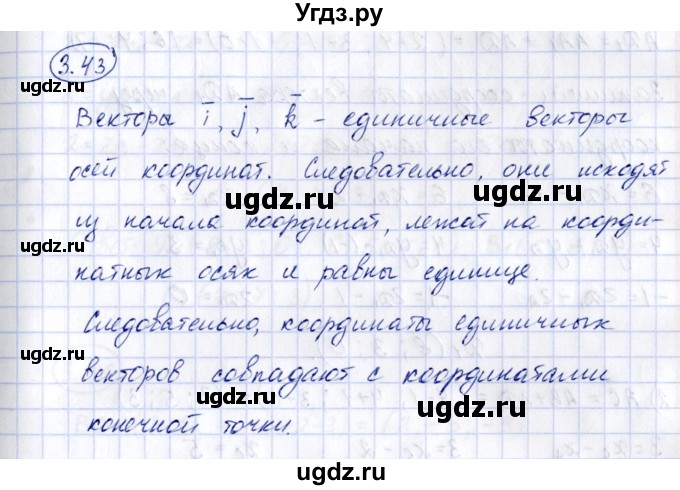 Угдз.ру
3.43
Векторы i̅, j̅, k̅ - единичные векторы
осей координат. Следовательно, они исходят
из начала координат, лежат на коорди-
натных осях и равны единице.
Следовательно, координаты единичных
векторов совпадают с координатами
конечной точки.
ugdz.ru
ugdz.ru
ugdz.ru
ugdz.ru
ugdz.ru
ugdz.ru
ugdz.ru
ugdz.ru
ugdz.ru
ugdz.ru
ugdz.ru